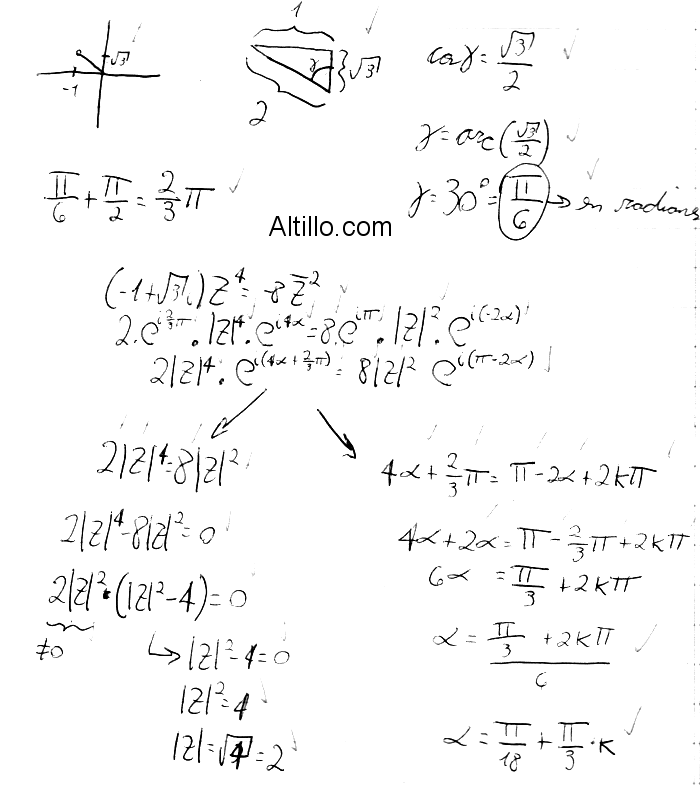 -1 √3
1
γ √3
2
cos γ = √3/2
γ = arc (√3/2)
γ = 30° = π/6 → en radianes
π/6 + π/2 = 2/3 π
Altillo.com
(-1+√3i) z⁴ = -8 z̄²
2.e^(i 2/3 π) . |z|⁴ . e^(i4α) = 8.e^(iπ) . |z|² . e^(i(-2α))
2|z|⁴ . e^(i(4α + 2/3 π)) = 8|z|² e^(i(π-2α))
2|z|⁴ = 8|z|²
2|z|⁴ - 8|z|² = 0
2|z|² . (|z|² - 4) = 0
≠0 ↳ |z|² - 4 = 0
|z|² = 4
|z| = √4 = 2
4α + 2/3 π = π - 2α + 2kπ
4α + 2α = π - 2/3 π + 2kπ
6α = π/3 + 2kπ
α = (π/3 + 2kπ)/6
α = π/18 + π/3 . k